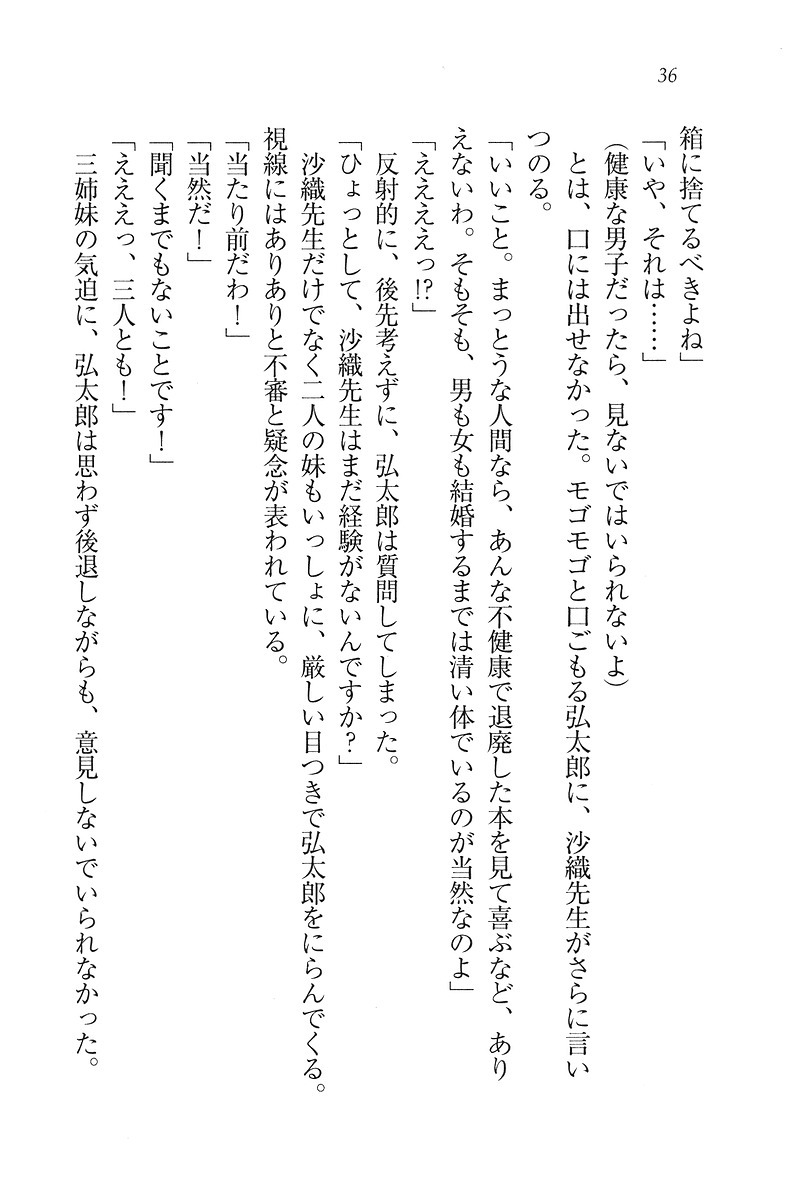 36
箱に捨てるべきよね」
「いや、それは……」
（健康な男子だったら、見ないではいられないよ）
とは、口には出せなかった。モゴモゴと口ごもる弘太郎に、沙織先生がさらに言い
つのる。
「いいこと。まっとうな人間なら、あんな不健康で退廃した本を見て喜ぶなど、あり
えないわ。そもそも、男も女も結婚するまでは清い体でいるのが当然なのよ」
「ええええっ!?」
反射的に、後先考えずに、弘太郎は質問してしまった。
「ひょっとして、沙織先生はまだ経験がないんですか？」
沙織先生だけでなく二人の妹もいっしょに、厳しい目つきで弘太郎をにらんでくる。
視線にはありありと不審と疑念が表われている。
「当たり前だわ！」
「当然だ！」
「聞くまでもないことです！」
「えええっ、三人とも！」
三姉妹の気迫に、弘太郎は思わず後退しながらも、意見しないでいられなかった。